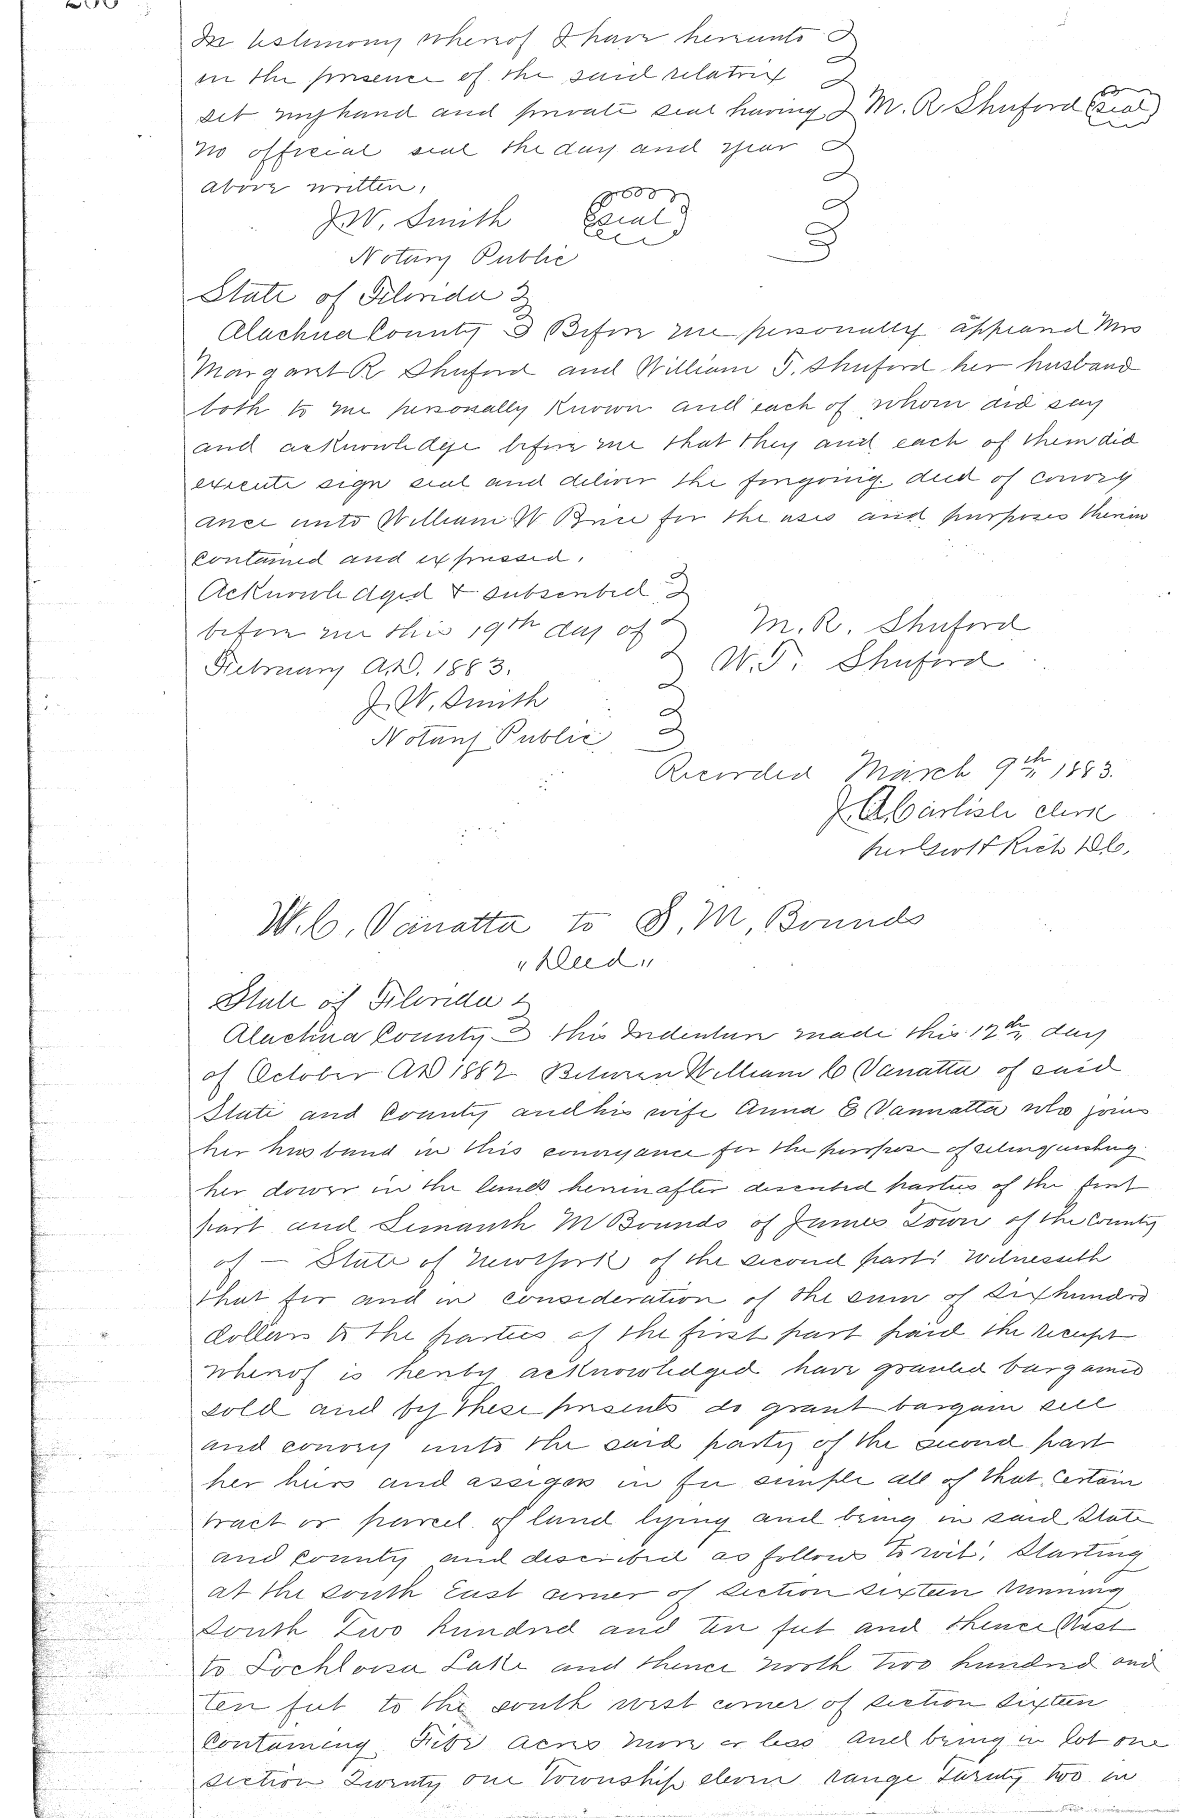 In testimony whereof I have hereunto
in the presence of the said relatrix
set my hand and private seal having M. R. Shuford (seal)
no official seal the day and year
above written.
J. W. Smith (seal)
Notary Public
State of Florida
Alachua County Before me personally appeared Mrs
Margaret R Shuford and William T. Shuford her husband
both to me personally known and each of whom did say
and acknowledge before me that they and each of them did
execute sign seal and deliver the foregoing deed of convey
ance unto William W Price for the uses and purposes therein
contained and expressed.
Acknowledged & subscribed
before me this 19th day of M. R. Shuford
February A.D. 1883. W. T. Shuford
J. W. Smith
Notary Public
Recorded March 9th 1883.
J. A. Carlisle clerk
per Rich D.C.
W. C. Vanatta to S. M, Bounds
"Deed"
State of Florida
Alachua County this Indenture made this 17th day
of October AD 1882 Between William C Vanatta of said
State and County and his wife Anna E Vannatta who joins
her husband in this conveyance for the purpose of relinquishing
her dower in the lands hereinafter described parties of the first
part and M Bounds of James Town of the County
of — State of New York of the second part: Witnesseth
that for and in consideration of the sum of six hundred
dollars to the parties of the first part paid the receipt
whereof is hereby acknowledged have granted bargained
sold and by these presents do grant bargain sell
and convey unto the said party of the second part
her heirs and assigns in fee simple all of that certain
tract or parcel of land lying and being in said State
and County and described as follows to wit: Starting
at the South East corner of Section sixteen running
South Two hundred and ten feet and thence West
to Lochloosa Lake and thence north two hundred and
ten feet to the south west corner of section sixteen
Containing Five acres more or less and being in Lot one
section Twenty one Township eleven range Twenty two in